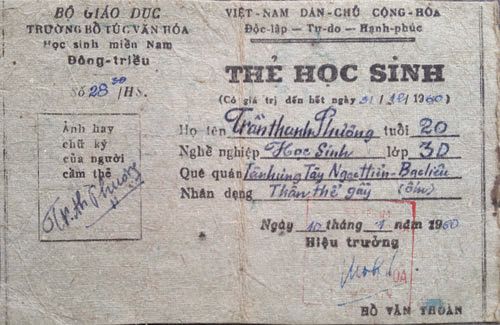 BỘ GIÁO DỤC
TRƯỜNG BỔ TÚC VĂN HÓA
Học sinh miền Nam
Đông-triều
Số 28 /HS.
Ảnh hay
chữ ký
của người
cầm thẻ
Tr.th Phương
VIỆT-NAM DÂN-CHỦ CỘNG-HÒA
Độc-lập — Tự-do — Hạnh-phúc
THẺ HỌC SINH
(Có giá trị đến hết ngày 31/12/1960)
Họ tên Trần thanh Phương tuổi 20
Nghề nghiệp Học Sinh lớp 3D
Quê quán Tân hưng Tây Ngọc Hiển - Bạc liêu
Nhân dạng Thân thể gầy (ốm)
Ngày 10 tháng 1 năm 1960
Hiệu trưởng
HỒ VĂN THOÀN